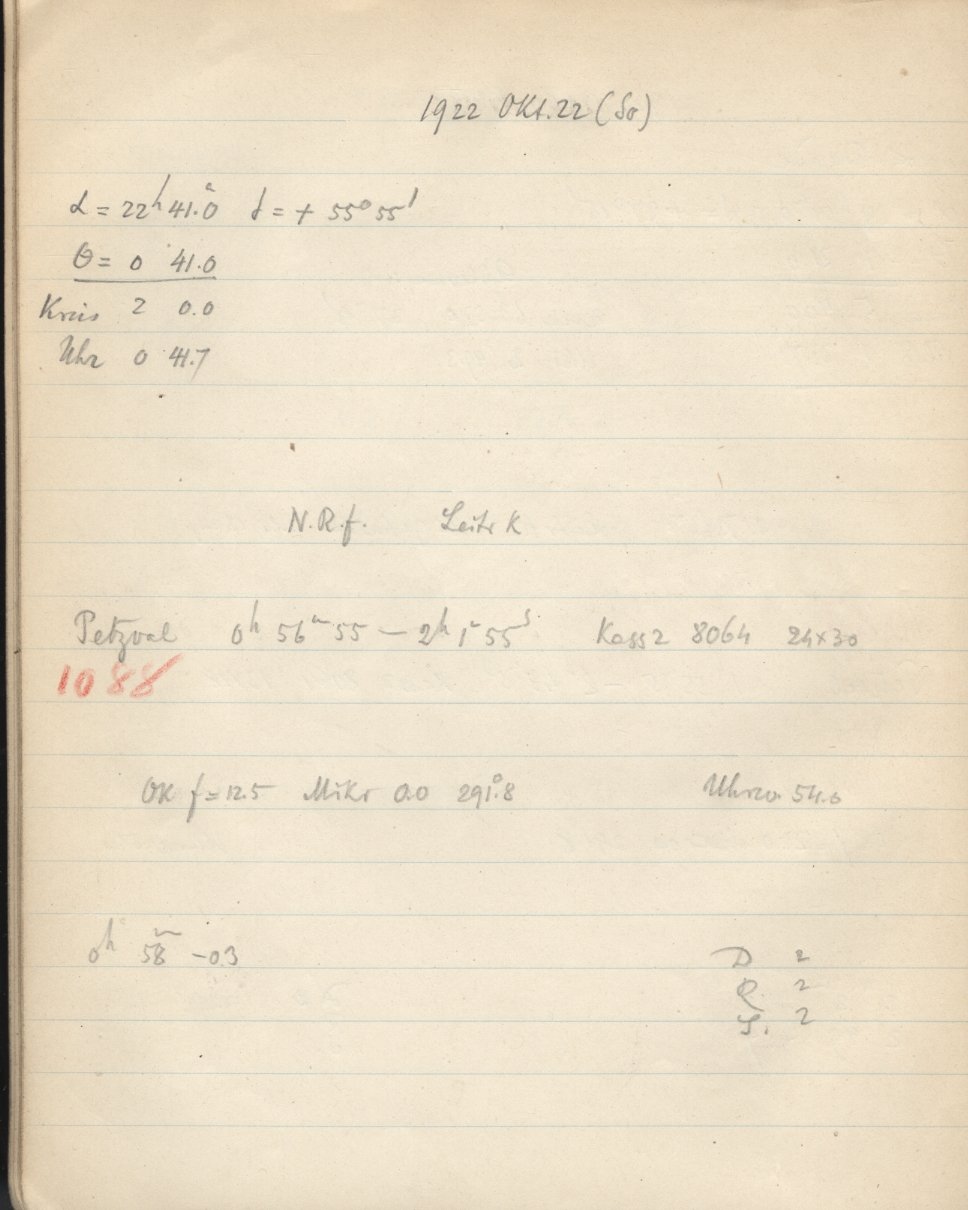 1922 Okt. 22 (So)
α = 22h 41.m0 δ = + 55° 55'
θ = 0 41.0
Kreis 2 0.0
Uhr 0 41.7
N.R.f. Leitr K
Petzval 0h 56m 55 — 2h 1m 55s Kass 2 8064 24×30
1088
OK f = 12.5 Mikr 0.0 291.°8 54.0
0h 58m -0.3
D 2
R. 2
S. 2